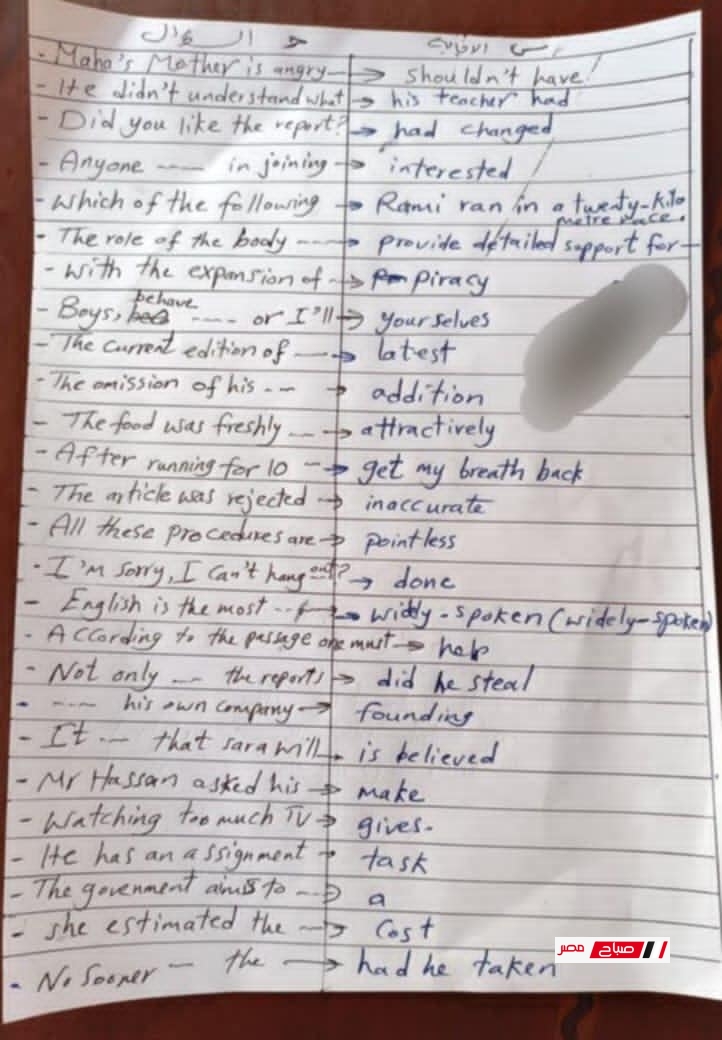 السؤال
- Maha's Mother is angry → shouldn't have
- He didn't understand what → his teacher had
- Did you like the report? → had changed
- Anyone ---- in joining → interested
- which of the following → Rami ran in a twenty-kilo metre race.
- The role of the body ---- → provide detailed support for -
- with the expansion of -- → piracy
- Boys, behave ---- or I'll → yourselves
- The current edition of --- → latest
- The omission of his --- → addition
- The food was freshly --- → attractively
- After running for 10 -- → get my breath back
- The article was rejected → inaccurate
- All these procedures are → pointless
- I'm sorry, I can't hang out? → done
- English is the most --- → widly-spoken (widely-spoken)
- According to the passage one must → help
- Not only --- the reports → did he steal
- ---- his own company → founding
- It --- that sara will → is believed
- Mr Hassan asked his → make
- Watching too much TV → gives.
- He has an assignment → task
- The govenment aims to --- → a
- she estimated the --- → cost
- No sooner -- the → had he taken
صباح مصر